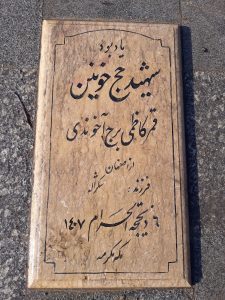 یادبود
شهید حج خونین
قمر کاظمی برج آخوندی
از اصفهان
فرزند: شکراله
۶ ذیحجه الحرام ۱۴۰۷
مکه مکرمه